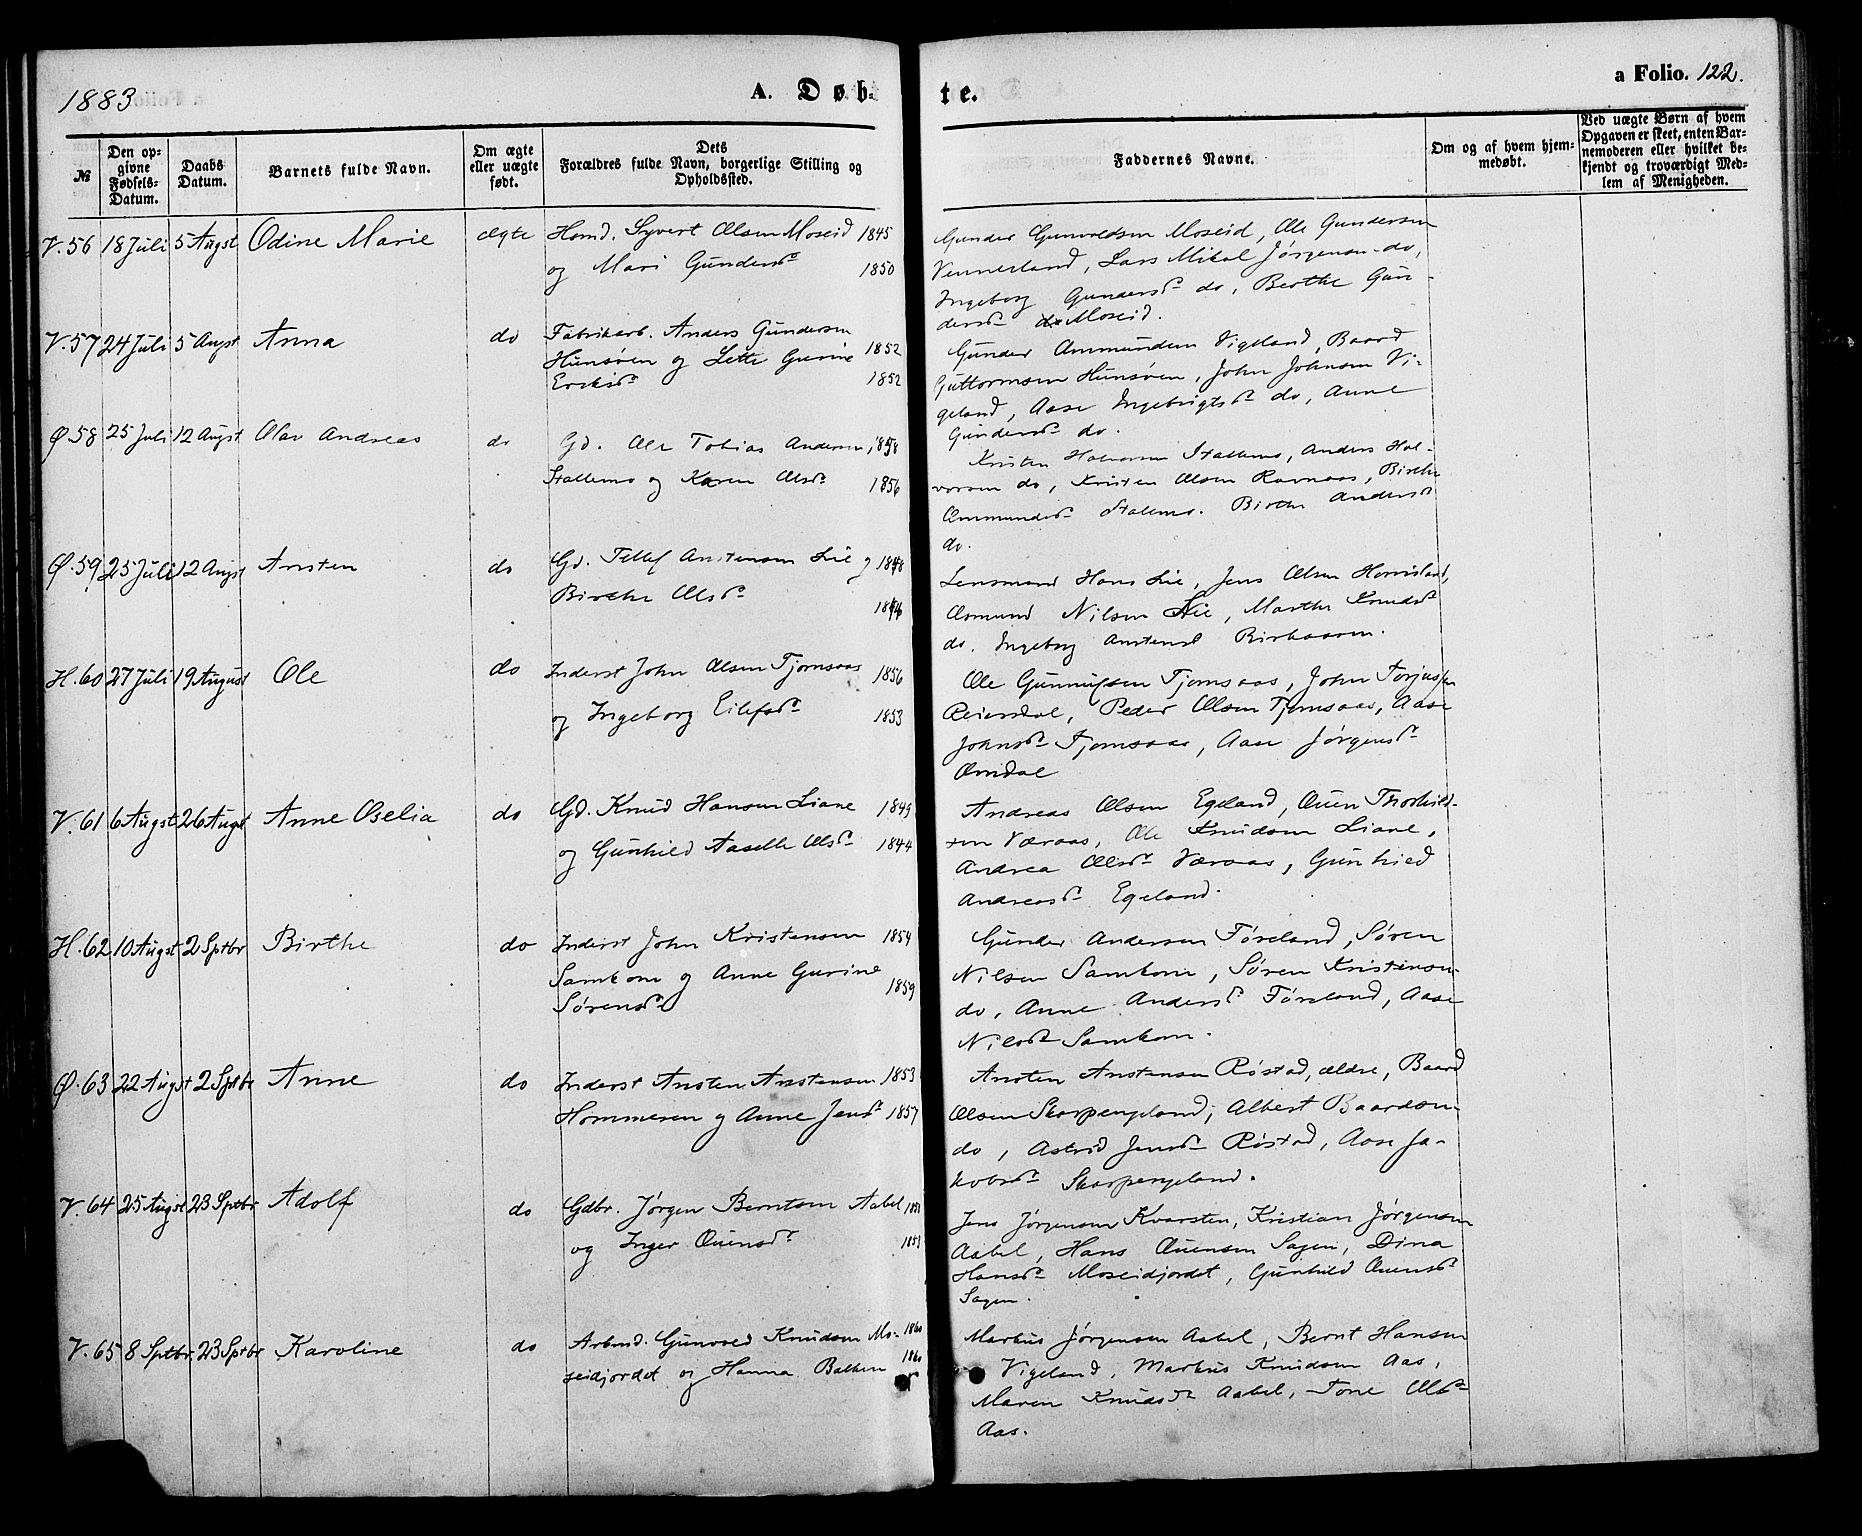 1883
A. Døb-
te.
a Folio. 122.
№
Den op-
givne
Fødsels-
Datum.
Daabs
Datum.
Barnets fulde Navn.
Om ægte
eller uægte
født.
Dets
Forældres fulde Navn, borgerlige Stilling og
Opholdssted.
Faddernes Navne.
Om og af hvem hjem-
medøbt.
Ved uægte Børn af hvem
Opgaven er skeet, enten Bar-
nemoderen eller hvilket be-
kjendt og troværdigt Med-
lem af Menigheden.
V. 56 18 Juli 5 Augst Odine Marie ægte
Homd. Syvert Olsen Moseid 1845
og Mari Gundersd 1850
Gunder Gunvoldsen Moseid, Ole Gundersen
Vennesland, Lars Mikal Jørgensen do,
Ingeborg Gundersd do, Berthe Gun-
dersd Moseid.
V. 57 24 Juli 5 Augst Anna do
Fabrikarb. Anders Gundersen
Hunsøen og Lette Gurine 1852
Eriksd 1852
Gunder Ommundsen Vigeland, Baard
Guttormsen Hunsøen, John Johnsen Vi-
geland, Aase Ingebrigtsd do, Anne
Gundersd do.
Ø. 58 25 Juli 12 Augst Olav Andreas do
Gd. Ole Tobias Andersen, 1858
Stallemo og Karen Olsd 1856
Kristen Halvorsen Stallemo, Anders Hal-
vorsen do, Kristen Olsen Ravnaas, Birthe
Ommundsd Stalemo. Birthe Andersd
do.
Ø. 59 25 Juli 12 Augst Ansten do
Gd. Tellef Anstensen Lie og
Birthe Olsd
Lensmand Hans Lie, Jens Olsen Homsland,
Osmund Nilsen Lie, Marthe Knudsd
do. Ingeborg Anstensd Birkaasen.
H. 60 27 Juli 19 August Ole do
Inderst John Olsen Tjomsaas 1856
og Ingeborg Eilefsd 1853
Ole Gunnufsen Tjomsaas, John Torjussen
Reiersdal, Peder Olsen Tjomsaas, Aase
Johnsd Tjomsaas, Aase Jørgensd
Omdal
V. 61 6 Augst 26 Augst Anne Oselia do
Gd. Knud Hansen Liane 1845
og Gunhild Aaselle Olsd 1844
Andreas Olsen Egeland, Ouen Thorkild-
sen Væraas, Ole Knudsen Liane,
Andrea Olsd Væraas, Gunhild
Andreasd Egeland.
H. 62 10 Augst 2 Sptbr Birthe do
Inderst John Kristensen 1854
Samkom og Anne Gurine 1859
Sørensd
Gunder Andersen Føreland, Søren
Nilsen Samkom, Søren Kristensen
do, Anne Andersd Føreland, Aase
Nilsd Samkom.
Ø. 63 22 Augst 2 Sptbr Anne do
Inderst Ansten Anstensen 1853
Hommeren og Anne Jensd 1857
Ansten Anstensen Røstad, ældre, Baard
Olsen Skarpengland, Albert Baardsen
do, Astrid Jensd Røstad, Aase Ja-
kobsd Skarpengland.
V. 64 25 Augst 23 Sptbr Adolf do
Gdbr. Jørgen Berntsen Aabel
og Inger Ouensd
Jens Jørgensen Kvarsten, Kristian Jørgensen
Aabel, Hans Ouensen Sagen, Dina
Hansd Moseidjordet, Gunhild Ouensd
Sagen.
V. 65 8 Sptbr 23 Sptbr Karoline do
Arbmd. Gunvold Knudsen Mo- 1860
seidjordet og Hanna Balken 1860
Markus Jørgensen Aabel, Bernt Hansen
Vigeland, Markus Knudsen Aas,
Maren Knudsd Aabel, Tone Olsd
Aas.